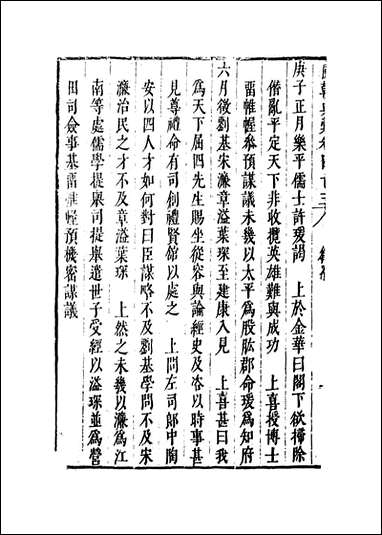 庚子正月樂平儒士許瑗謁　上於金華曰閣下欲掃除
僭亂平定天下非收攬英雄難與成功　上喜授博士
畱帷幄參預謀議未幾以太平爲股肱郡命瑗爲知府
六月徵劉基宋濂章溢葉琛至建康入見　上喜甚曰我
爲天下屈四先生賜坐從容與論經史及咨以時事甚
見尊禮命有司創禮賢館以處之　上問左司郎中陶
安以四人才如何對曰臣謀略不及劉基學問不及宋
濂治民之才不及章溢葉琛　上然之未幾以濂爲江
南等處儒學提舉司提舉遣世子受經以溢琛並爲營
田司僉事基畱帷幄預機密謀議